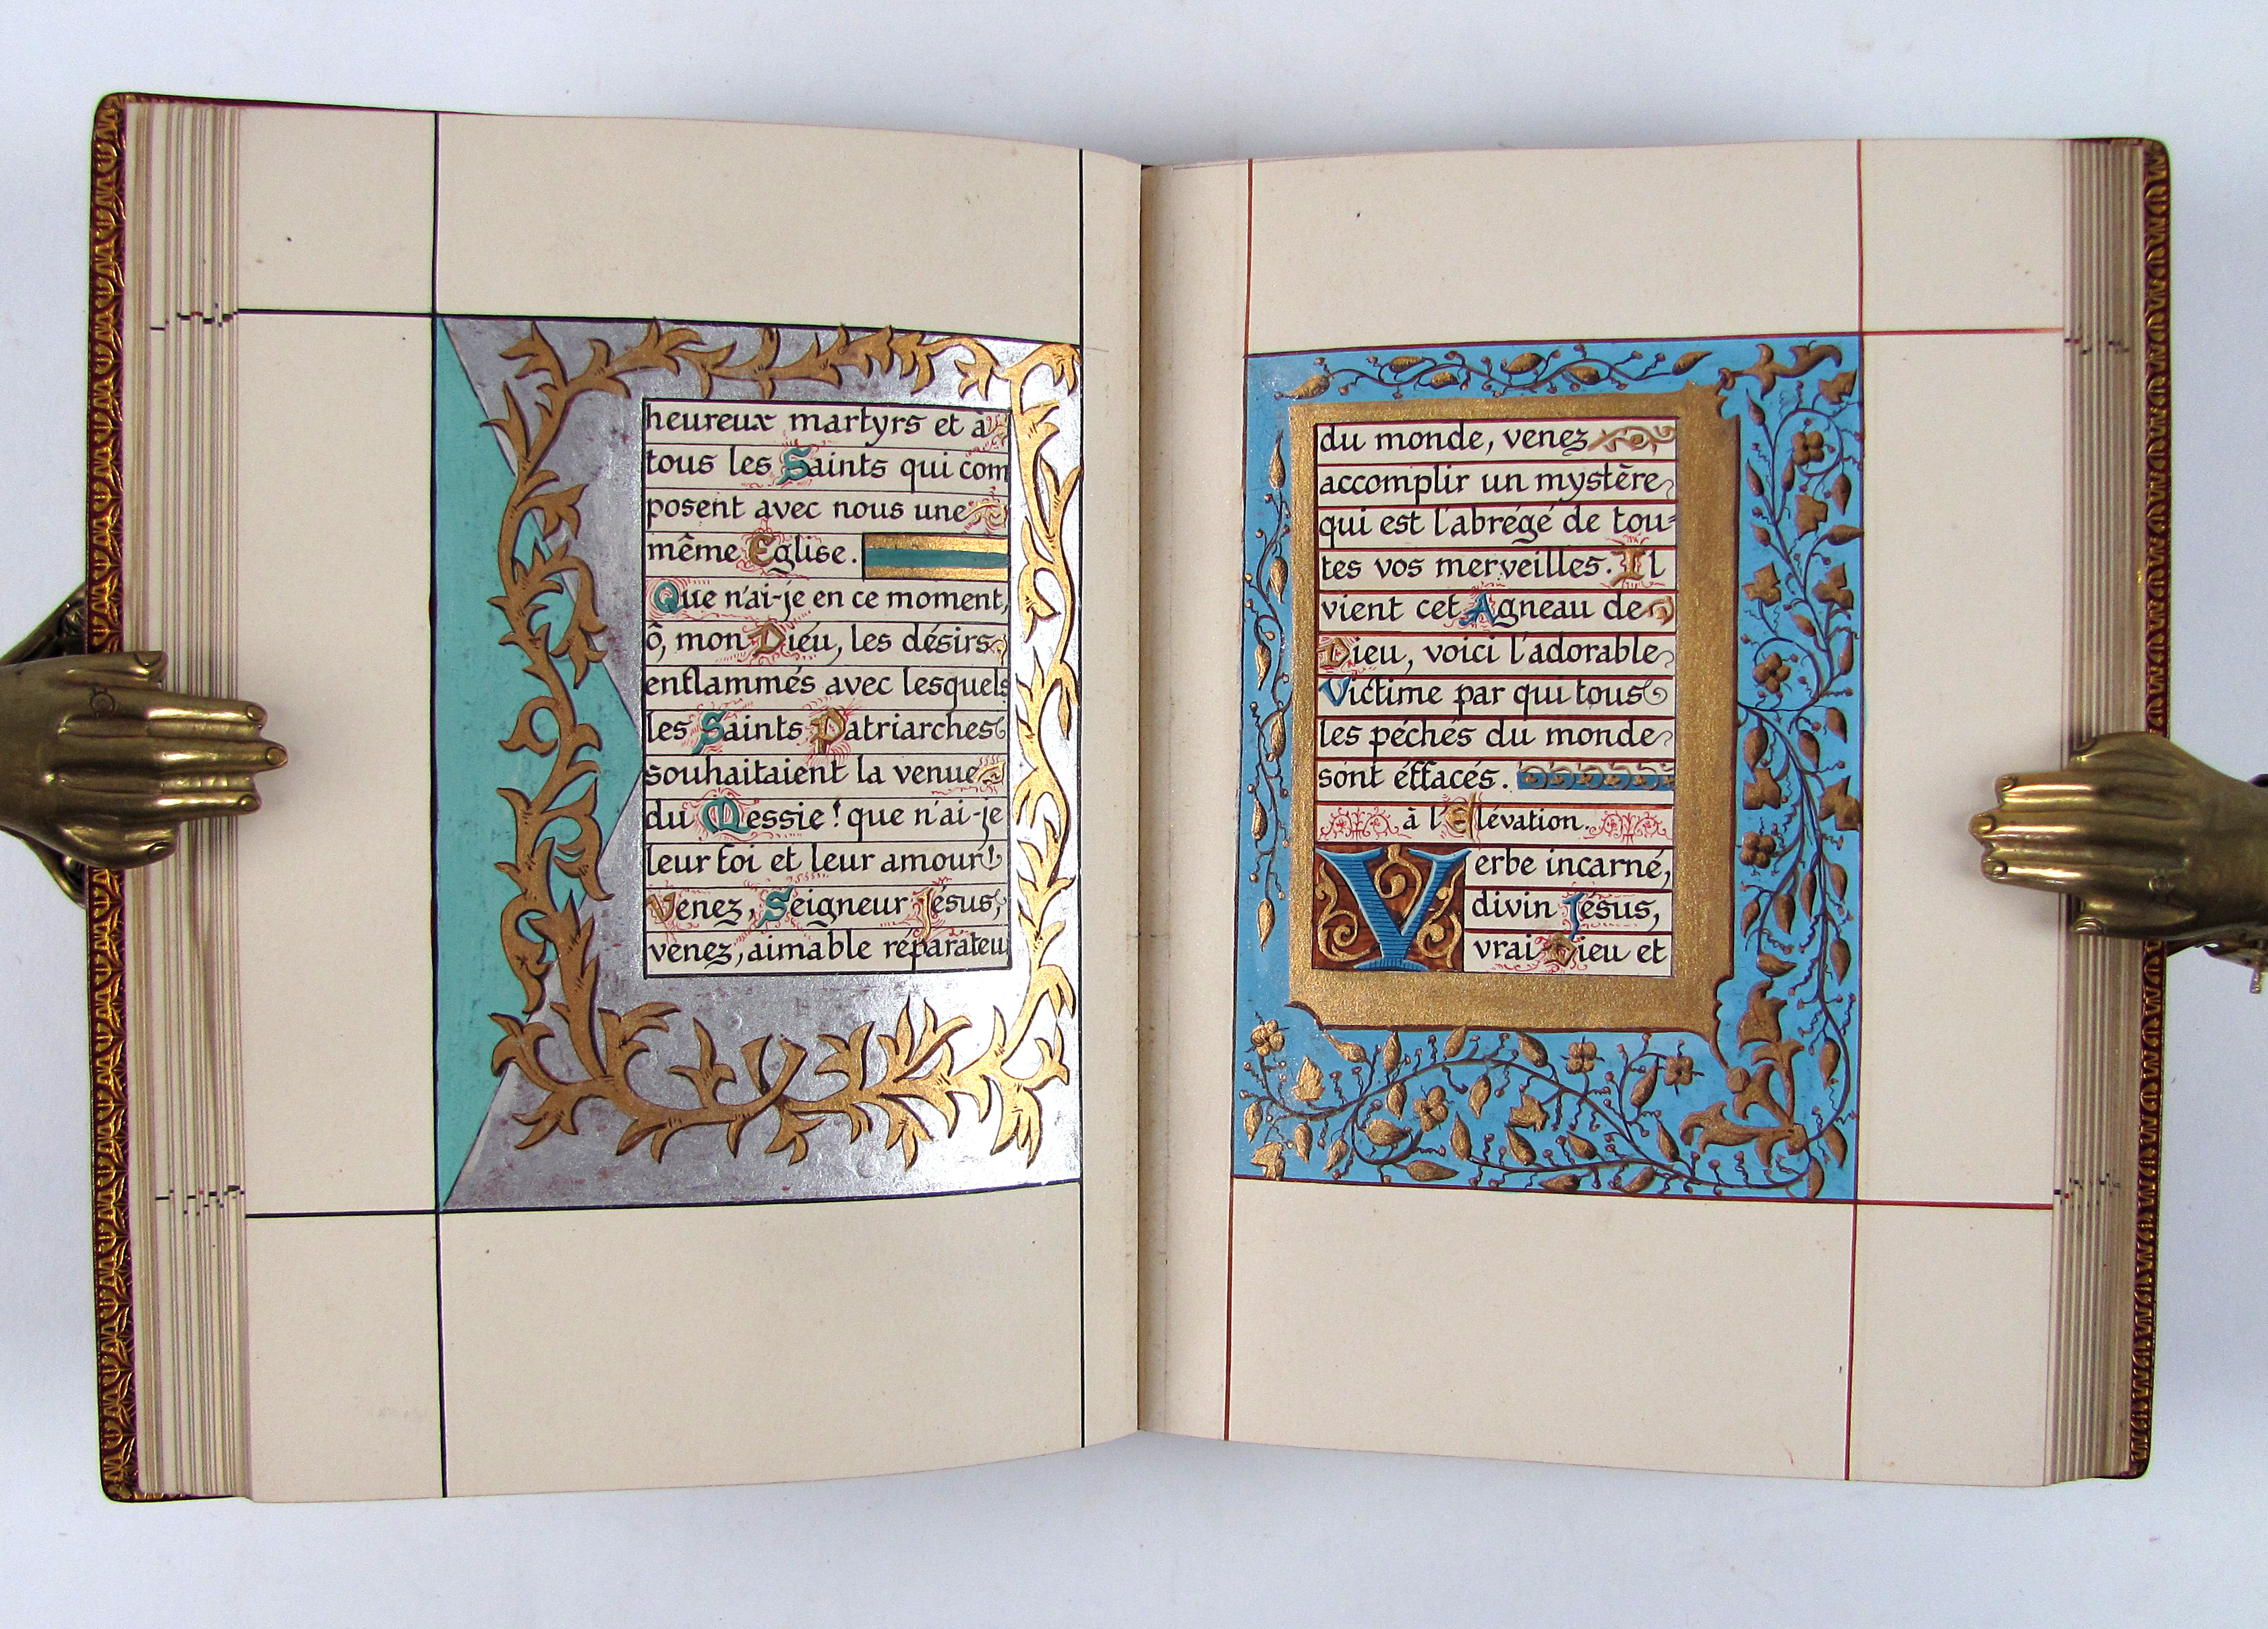 heureux martyrs et à
tous les Saints qui com
posent avec nous une
même Eglise.
Que n'ai-je en ce moment,
ô, mon Dieu, les désirs
enflammés avec lesquels
les Saints Patriarches
souhaitaient la venue
du Messie! que n'ai-je
leur foi et leur amour!
Venez, Seigneur Jésus,
venez, aimable réparateu
du monde, venez
accomplir un mystère
qui est l'abrégé de tou=
tes vos merveilles. Il
vient cet Agneau de
Dieu, voici l'adorable
Victime par qui tous
les péchés du monde
sont éffacés.
à l'Elévation.
Verbe incarné,
divin Jésus,
vrai Dieu et